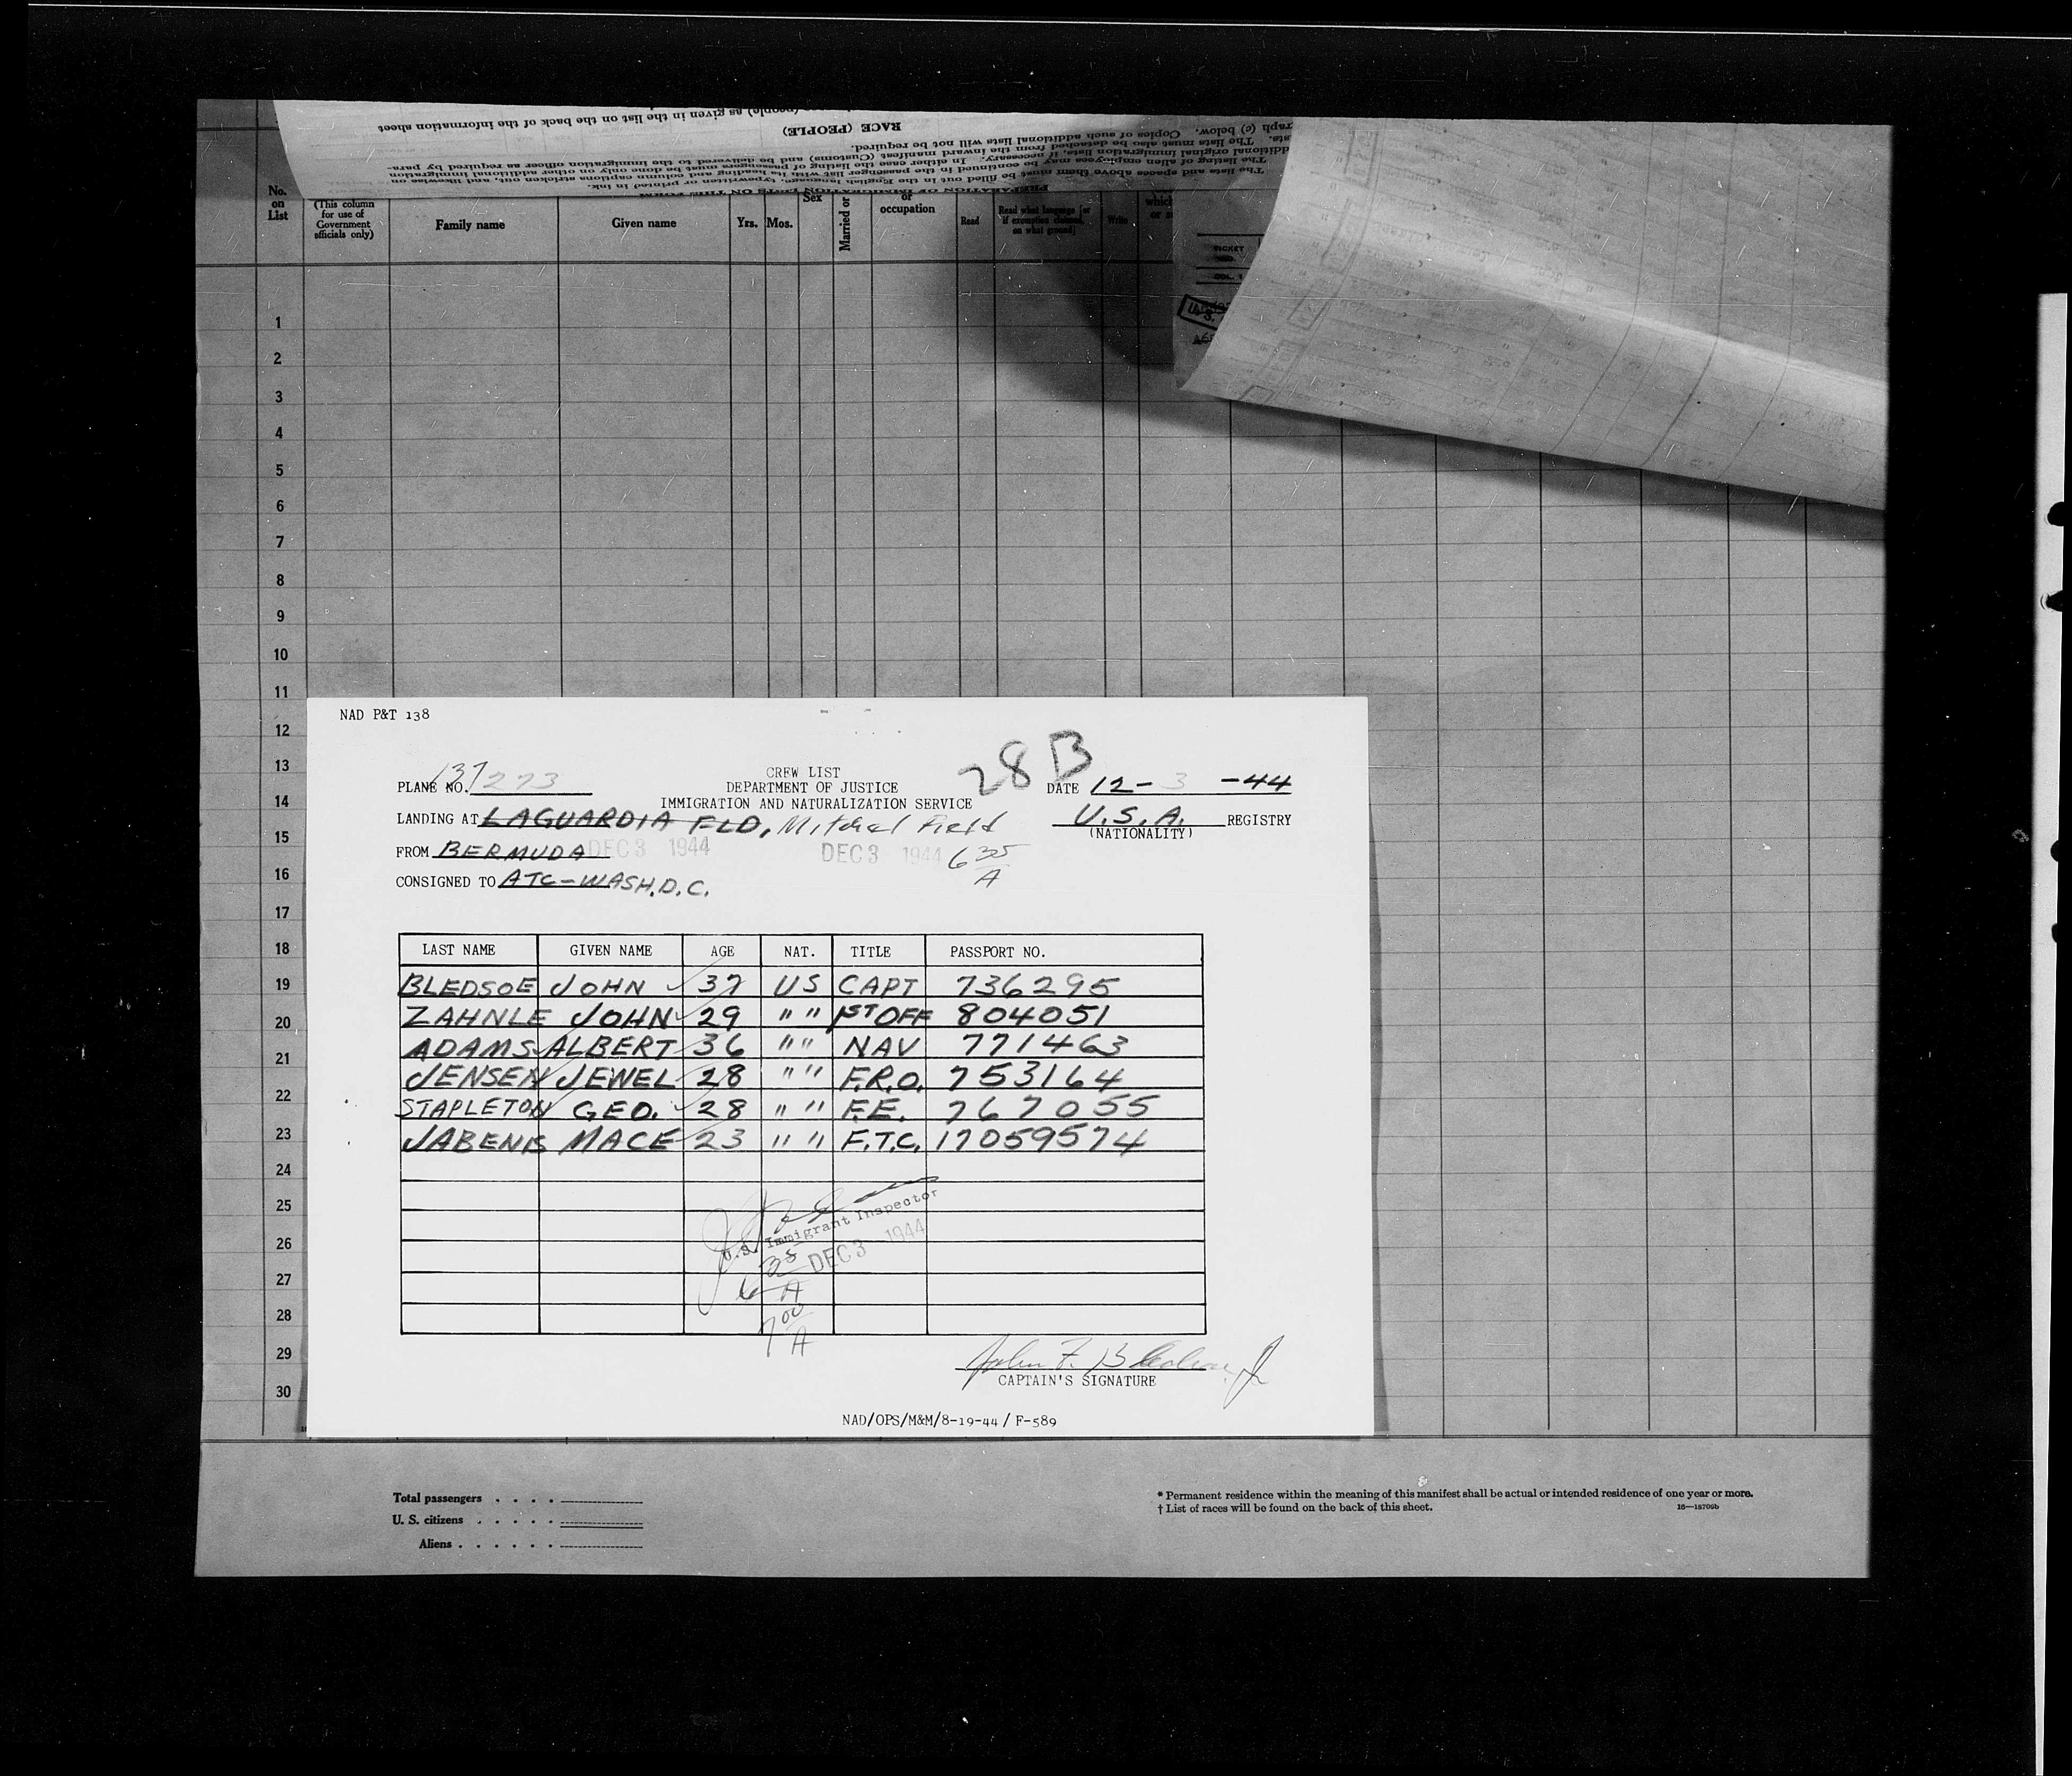 (people) as given in the list on the back of the information sheet
RACE (PEOPLE)
graph (c) below. Copies of such additional lists will not be required.
The lists must also be detached from the inward manifest (Customs) and be delivered to the immigration officer as required by para-
additional original immigration lists, if necessary. In either case the listing of passengers must be done only on other additional immigration
The listing of alien employees may be continued in the passenger list with its heading and column captions stricken out, and likewise on
The lists and spaces above them must be filled out in the English language, typewritten or printed in ink.
PREPARATION OF IMMIGRATION LISTS ON THIS FORM
No. on List
(This column for use of Government officials only)
Family name
Given name
Yrs.
Mos.
Sex
Married or
or occupation
Read
Read what language [or if exemption claimed, on what ground]
Write
which
TICKET NO.
COL. 1
U. S.
1
2
3
4
5
6
7
8
9
10
11
12
13
14
15
16
17
18
19
20
21
22
23
24
25
26
27
28
29
30
NAD P&T 138
28 B
CREW LIST
PLANE NO. 137273 DEPARTMENT OF JUSTICE DATE 12-3-44
IMMIGRATION AND NATURALIZATION SERVICE
LANDING AT LAGUARDIA FLD, Mitchel Field U.S.A. REGISTRY
(NATIONALITY)
FROM BERMUDA DEC 3 1944 DEC 3 1944 6 35 A
CONSIGNED TO ATC-WASH.D.C.
LAST NAME GIVEN NAME AGE NAT. TITLE PASSPORT NO.
BLEDSOE JOHN 37 US CAPT 736295
ZAHNLE JOHN 29 " " 1ST OFF 804051
ADAMS ALBERT 36 " " NAV 771463
JENSEN JEWEL 28 " " F.R.O. 753164
STAPLETON GEO. 28 " " F.E. 767055
MACE 23 " " F.T.C. 17059574
U.S. Immigrant Inspector
6 35 A DEC 3 1944
7 00 A
John F. Bledsoe Jr
CAPTAIN'S SIGNATURE
NAD/OPS/M&M/8-19-44/ F-589
Total passengers . . . .
U. S. citizens . . . . .
Aliens . . . . . .
* Permanent residence within the meaning of this manifest shall be actual or intended residence of one year or more.
† List of races will be found on the back of this sheet.
16—18709b